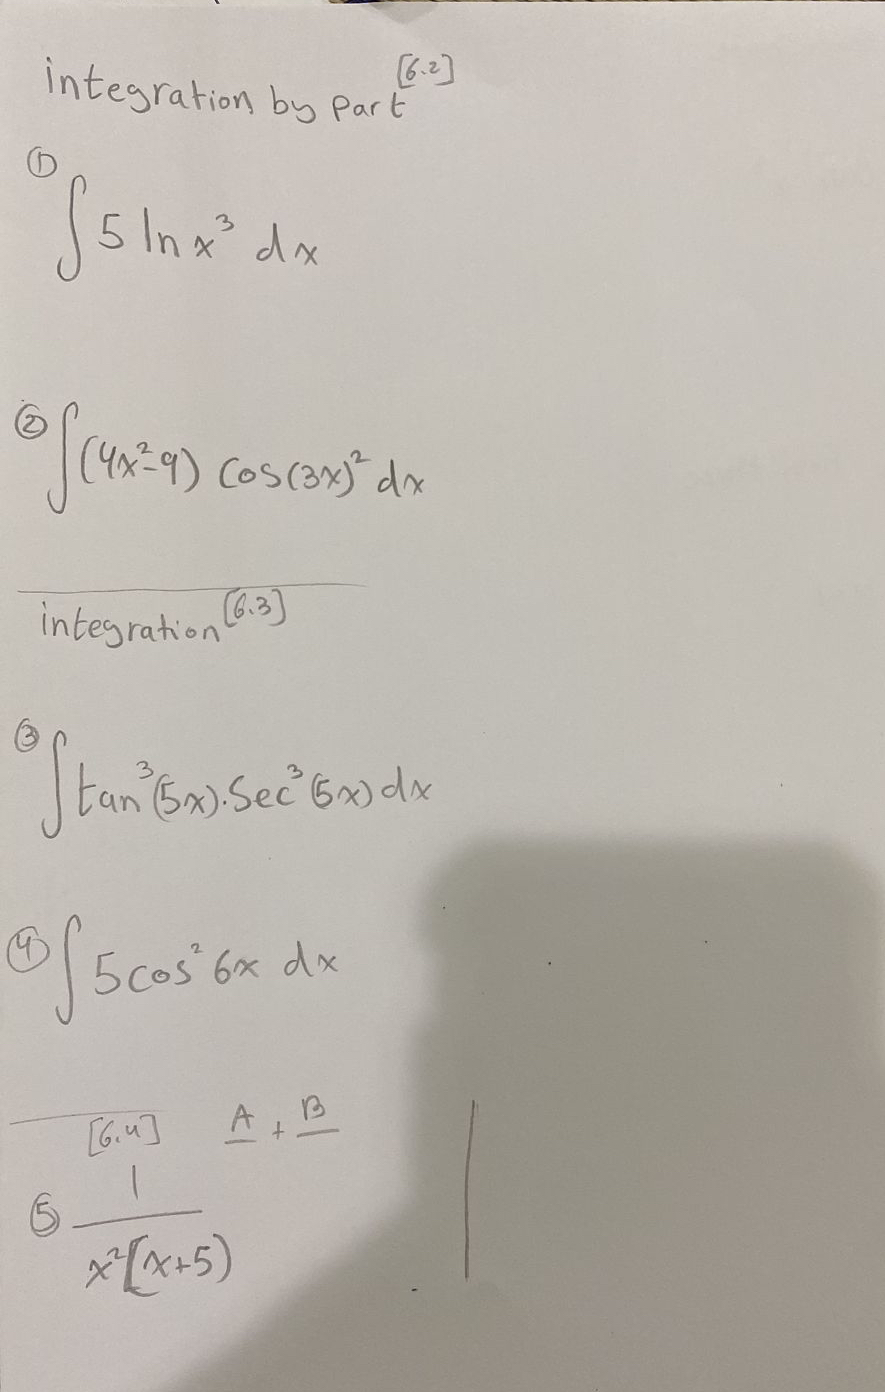 integration by part [6.2]
① ∫ 5 ln x³ dx
② ∫ (4x²-9) cos(3x)² dx
integration [6.3]
③ ∫ tan³(5x).Sec³(5x) dx
④ ∫ 5 cos² 6x dx
[6.4] A + B
⑤ 1
x²(x+5)